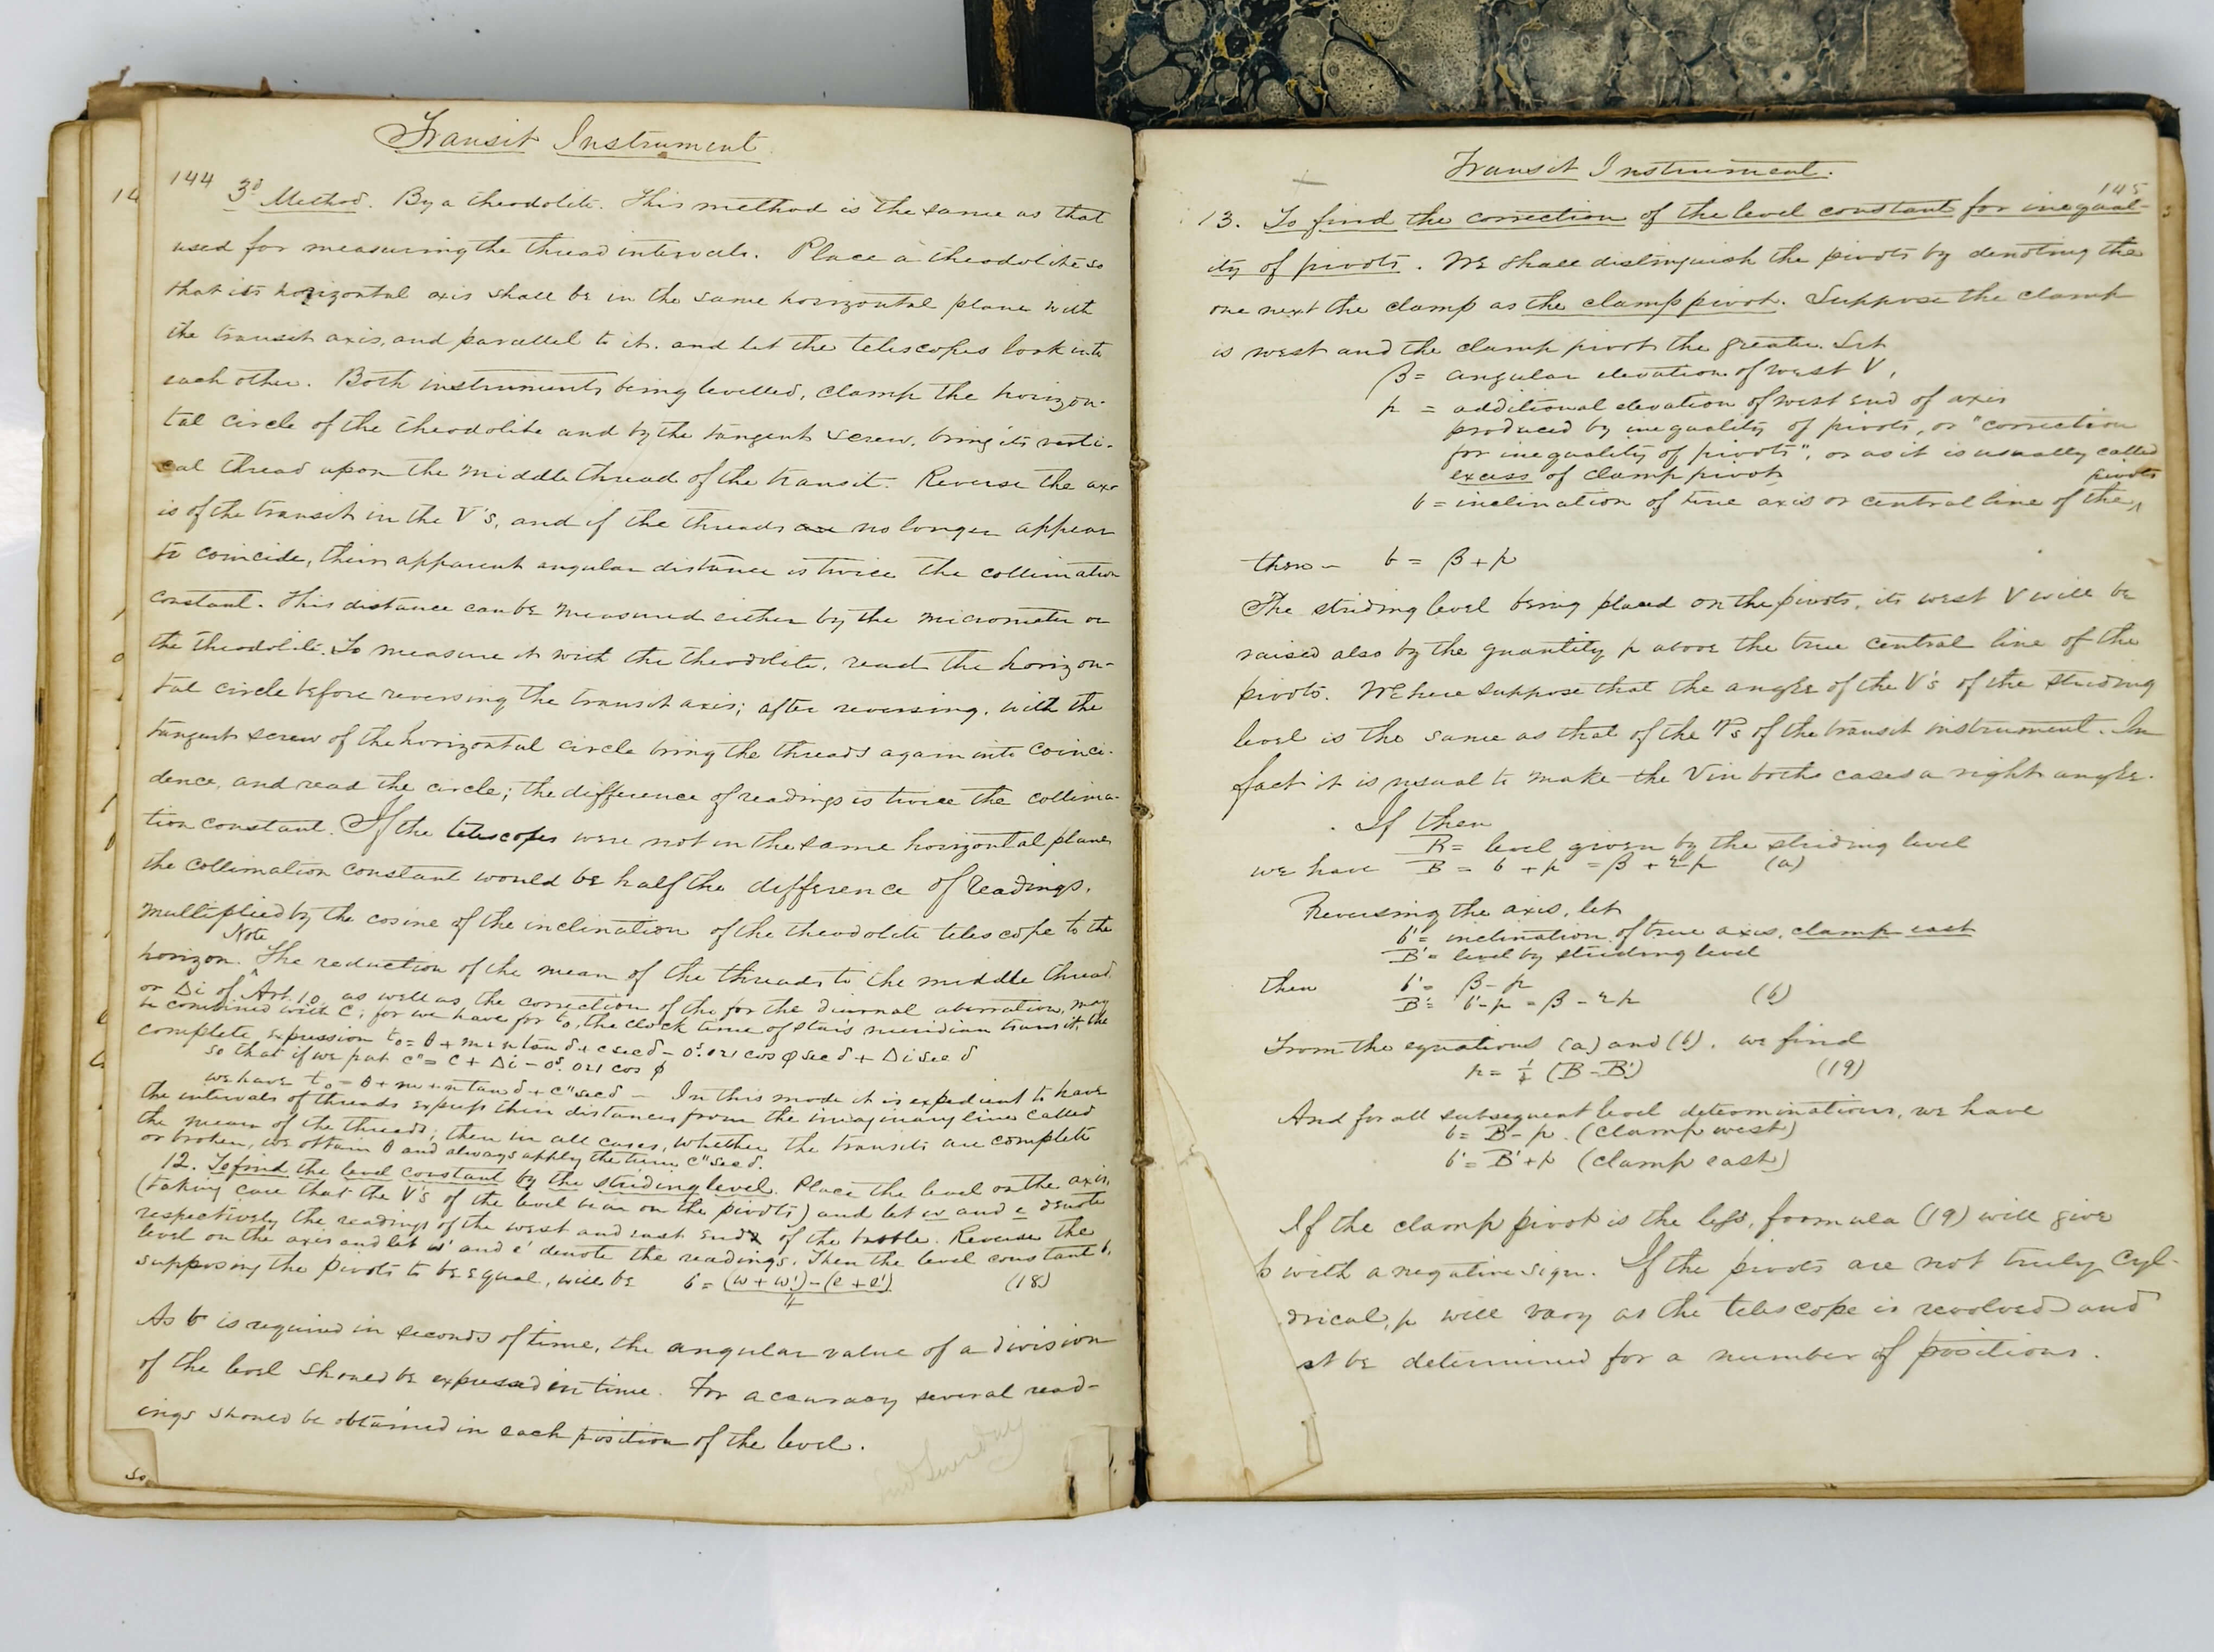 Transit Instrument
144
3d Method. By a theodolite. This method is the same as that
used for measuring the thread intervals. Place a theodolite so
that its horizontal axis shall be in the same horizontal plane with
the transit axis, and parallel to it. and let the telescopes look into
each other. Both instruments being levelled, clamp the horizon-
tal circle of the theodolite and by the tangent screw, bring its verti-
cal thread upon the middle thread of the transit. Reverse the ax-
is of the transit in the V's, and if the threads no longer appear
to coincide, their apparent angular distance is twice the collimation
constant. This distance can be measured either by the micrometer or
the theodolite. To measure it with the theodolite, read the horizon-
tal circle before reversing the transit axis; after reversing, with the
tangent screw of the horizontal circle bring the threads again into coinci-
dence, and read the circle; the difference of readings is twice the collima-
tion constant. If the telescopes were not in the same horizontal plane
the collimation constant would be half the difference of readings,
multiplied by the cosine of the inclination of the theodolite telescope to the
Note
horizon. The reduction of the mean of the threads to the middle thread
or Δi of Art. 10, as well as the correction of the for the diurnal aberration, may
be combined with C; for we have for t₀, the clock time of star's meridian transit, the
complete expression t₀ = θ + m + n tan δ + c sec δ - 0ˢ.021 cos φ sec δ + Δi sec δ
so that if we put c" = c + Δi - 0ˢ.021 cos φ
we have t₀ = θ + m + n tan δ + c" sec δ — In this mode it is expedient to have
the intervals of threads express their distances from the imaginary line called
the mean of the threads; then in all cases, whether the transits are complete
or broken, we obtain θ and always apply the term c" sec δ.
12. To find the level constant by the striding level. Place the level on the axis,
(taking care that the V's of the level bear on the pivots) and let w and e denote
respectively the readings of the west and east ends of the bubble. Reverse the
level on the axis and let w' and e' denote the readings. Then the level constant b,
supposing the pivots to be equal, will be b = (w + w') - (e + e') / 4 (18)
As b is required in seconds of time, the angular value of a division
of the level should be expressed in time. For accuracy several read-
ings should be obtained in each position of the level.
Transit Instrument.
145
13. To find the correction of the level constant for inequal-
ity of pivots. We shall distinguish the pivots by denoting the
one next the clamp as the clamp pivot. Suppose the clamp
is west and the clamp pivot the greater. Let
β = angular elevation of west V,
p = additional elevation of west end of axis
produced by inequality of pivots, or "correction
for inequality of pivots", or as it is usually called
excess of clamp pivot
b = inclination of true axis or central line of the pivots
then – b = β + p
The striding level being placed on the pivots, its west V will be
raised also by the quantity p above the true central line of the
pivots. We here suppose that the angle of the V's of the striding
level is the same as that of the V's of the transit instrument. In
fact it is usual to make the V in both cases a right angle.
If then
B = level given by the striding level
we have B = b + p = β + 2p (a)
Reversing the axis, let
b' = inclination of true axis, clamp east
B' = level by striding level
then b' = β - p
B' = b' - p = β - 2p (b)
From the equations (a) and (b), we find
p = ¼ (B - B') (19)
And for all subsequent level determinations, we have
b = B - p. (clamp west)
b' = B' + p (clamp east)
If the clamp pivot is the less, formula (19) will give
p with a negative sign. If the pivots are not truly cyl-
drical, p will vary as the telescope is revolved and
st be determined for a number of positions.